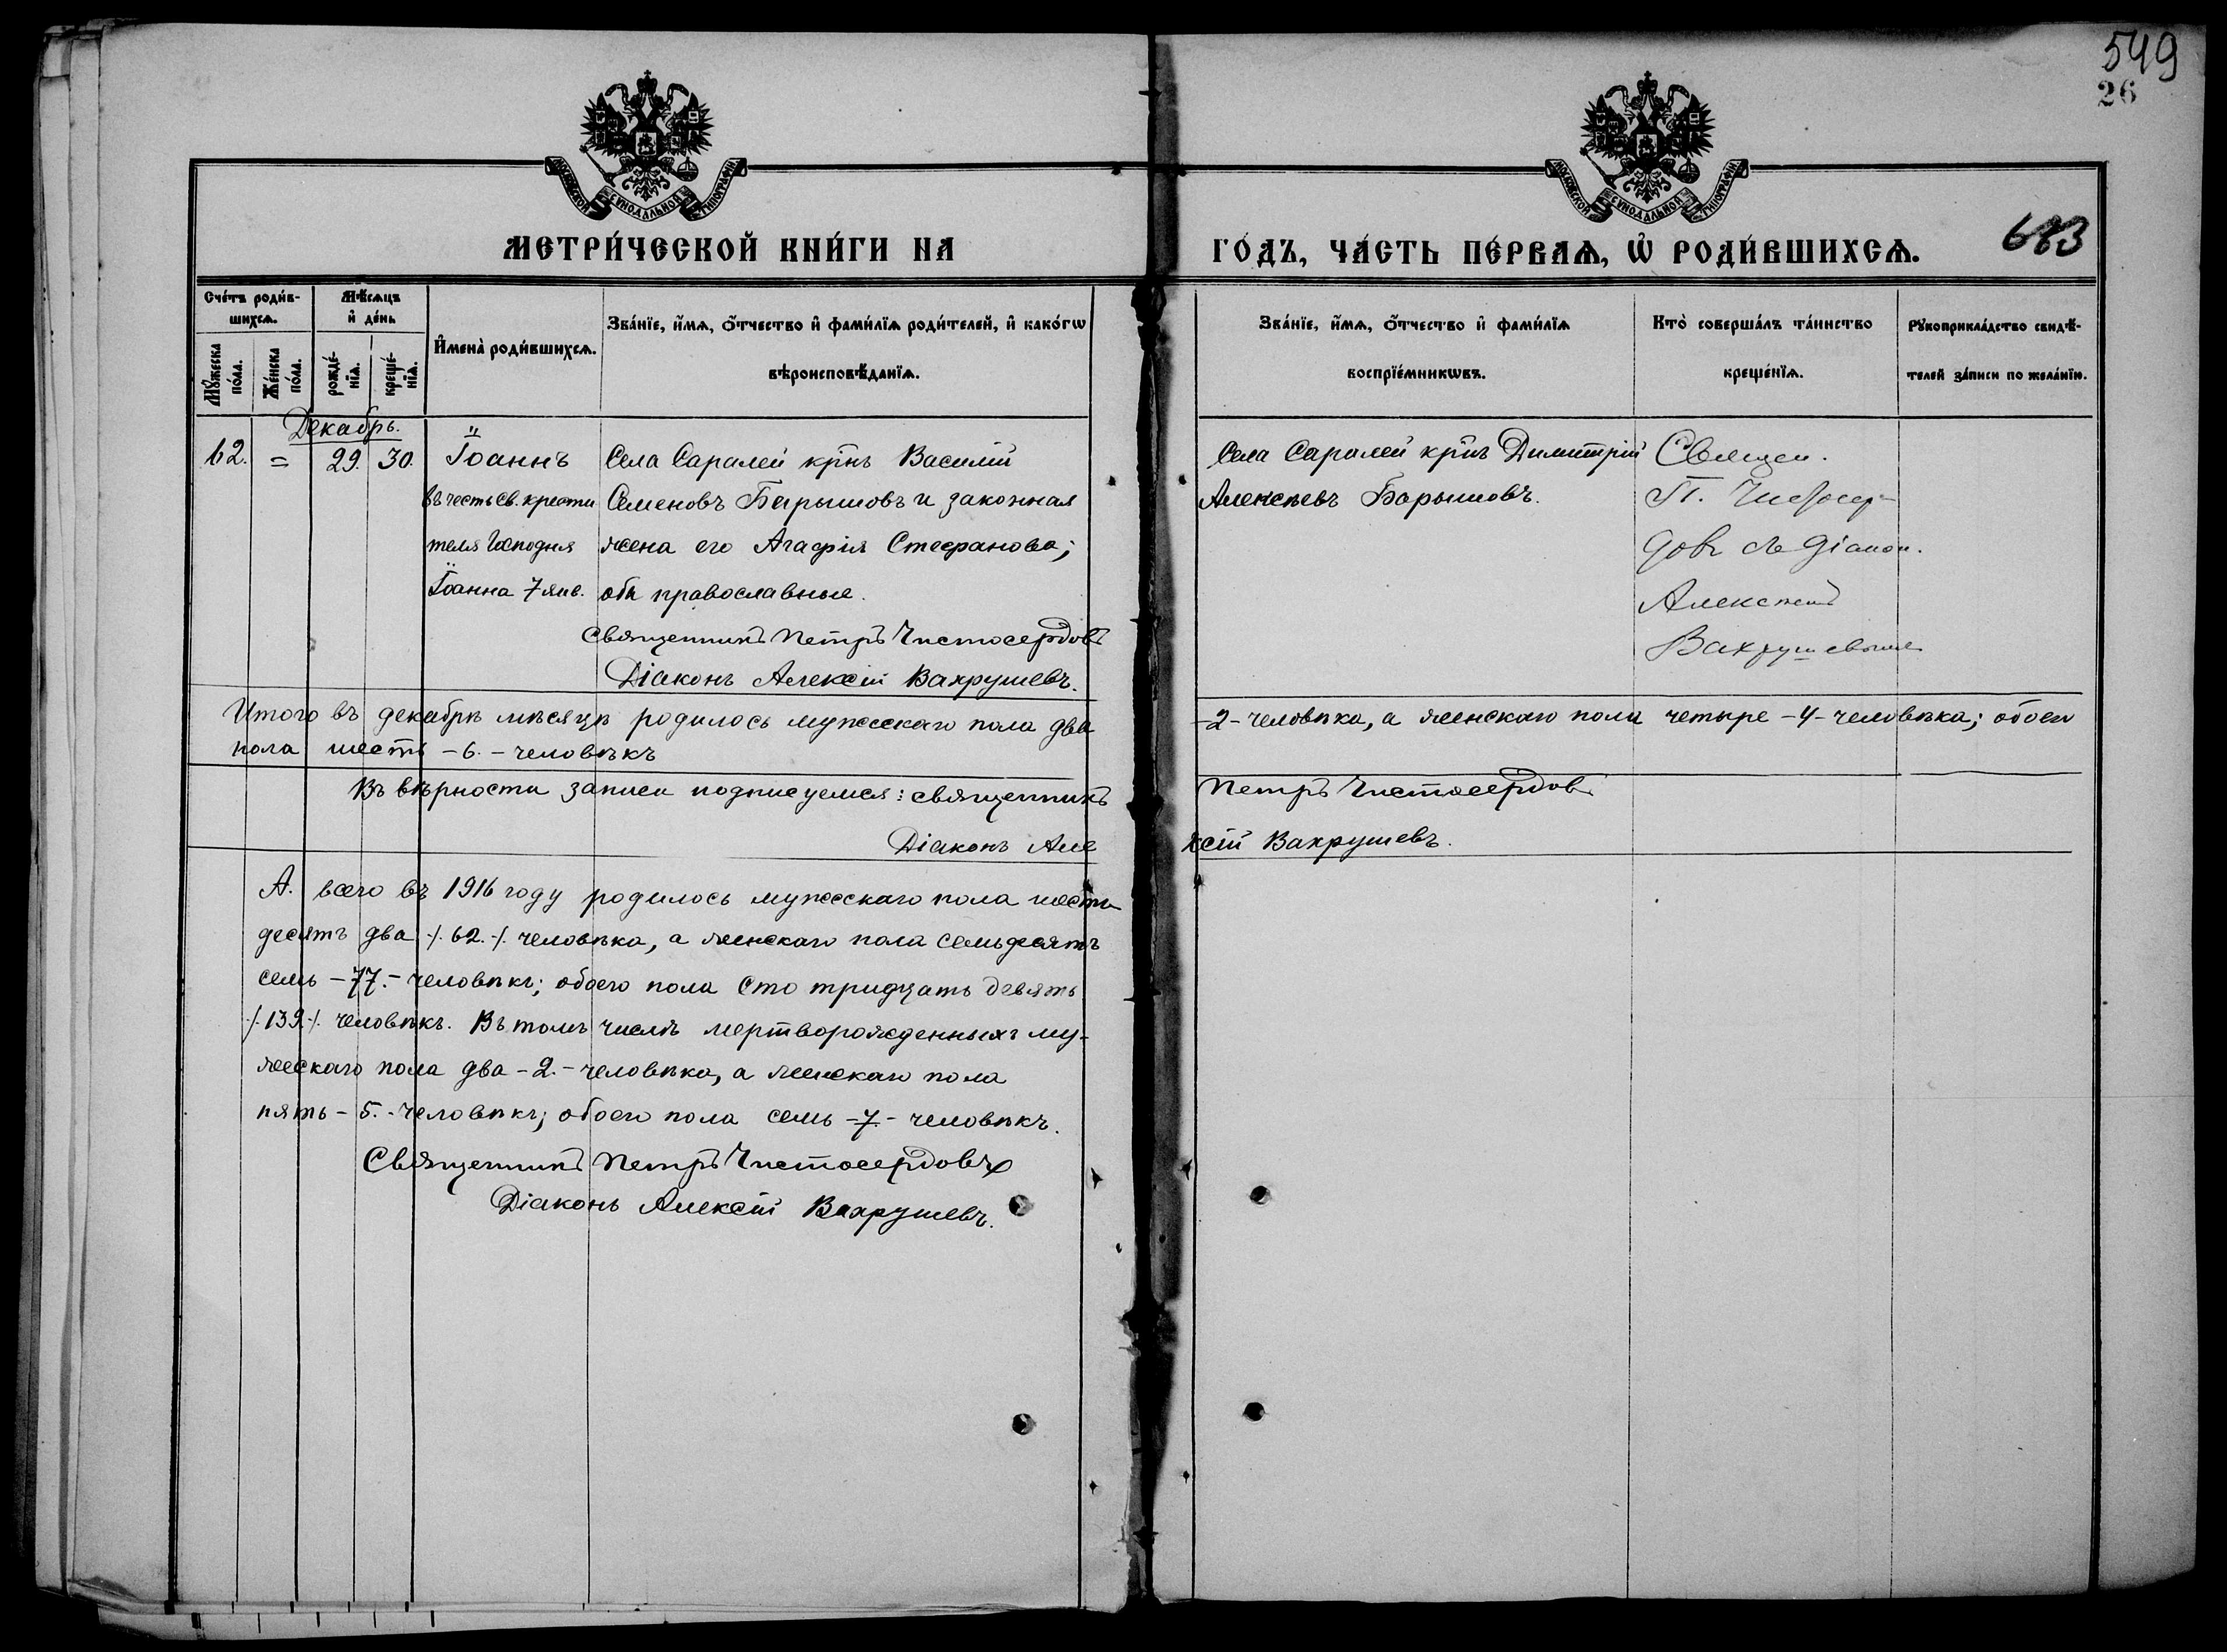 549
26
МОСКОВСКОЙ СѴНОДАЛЬНОЙ ТИПОГРАФІИ
МОСКОВСКОЙ СѴНОДАЛЬНОЙ ТИПОГРАФІИ
МЕТРИ́ЧЕСКОЙ КНИ́ГИ НА ГО́ДЪ, ЧА́СТЬ ПЕ́РВАѦ, Ѡ҆ РОДИ́ВШИХСѦ.
683
Сче́тъ роди́в-
шихсѧ.
Мꙋ́жеска
по́ла.
Же́нска
по́ла.
Мѣ́сѧцъ
и҆ де́нь
рожде́-
нїѧ.
креще́-
нїѧ.
И҆мена̀ роди́вшихсѧ.
Зва́нїе, и҆́мѧ, ѻ҆́тчество и҆ фами́лїѧ роди́телей, и҆ како́гѡ
вѣроисповѣ́данїѧ.
Зва́нїе, и҆́мѧ, ѻ҆́тчество и҆ фами́лїѧ
воспрїе́мникѡвъ.
Кто̀ соверша́лъ та́инство
креще́нїѧ.
Рꙋкоприкла́дство свидѣ́-
телей за́писи по жела́нїю.
Декабрь.
62. = 29. 30. Іоаннъ
въ честь св. крести
теля Господня
Іоанна 7 янв.
Села Саралей крнъ Василій
Семеновъ Барышовъ и законная
жена его Агафія Стефанова;
оба православные.
Священникъ Петръ Чистосердовъ
Діаконъ Алексій Вахрушевъ.
Села Саралей крнъ Димитрій
Алексѣевъ Барышовъ.
Священ.
П. Чистосер-
довъ съ діакон.
Алексѣемъ
Вахрушевымъ
Итого въ декабрѣ мѣсяцѣ родилось мужескаго пола два -2- человѣка, а женскаго пола четыре -4- человѣка; обоего
пола шесть -6.- человѣкъ
Въ вѣрности записи подписуемся: священникъ Петръ Чистосердовъ
Діаконъ Алексій Вахрушевъ.
А. всего въ 1916 году родилось мужескаго пола шесть
десятъ два ./. 62. ./. человѣка, а женскаго пола семьдесятъ
семь -77.- человѣкъ; обоего пола сто тридцать девять
./. 139 ./. человѣкъ. Въ томъ числѣ мертворожденныхъ му-
жескаго пола два -2.- человѣка, а женскаго пола
пять -5.- человѣкъ; обоего пола семь -7- человѣкъ.
Священникъ Петръ Чистосердовъ
Діаконъ Алексій Вахрушевъ.